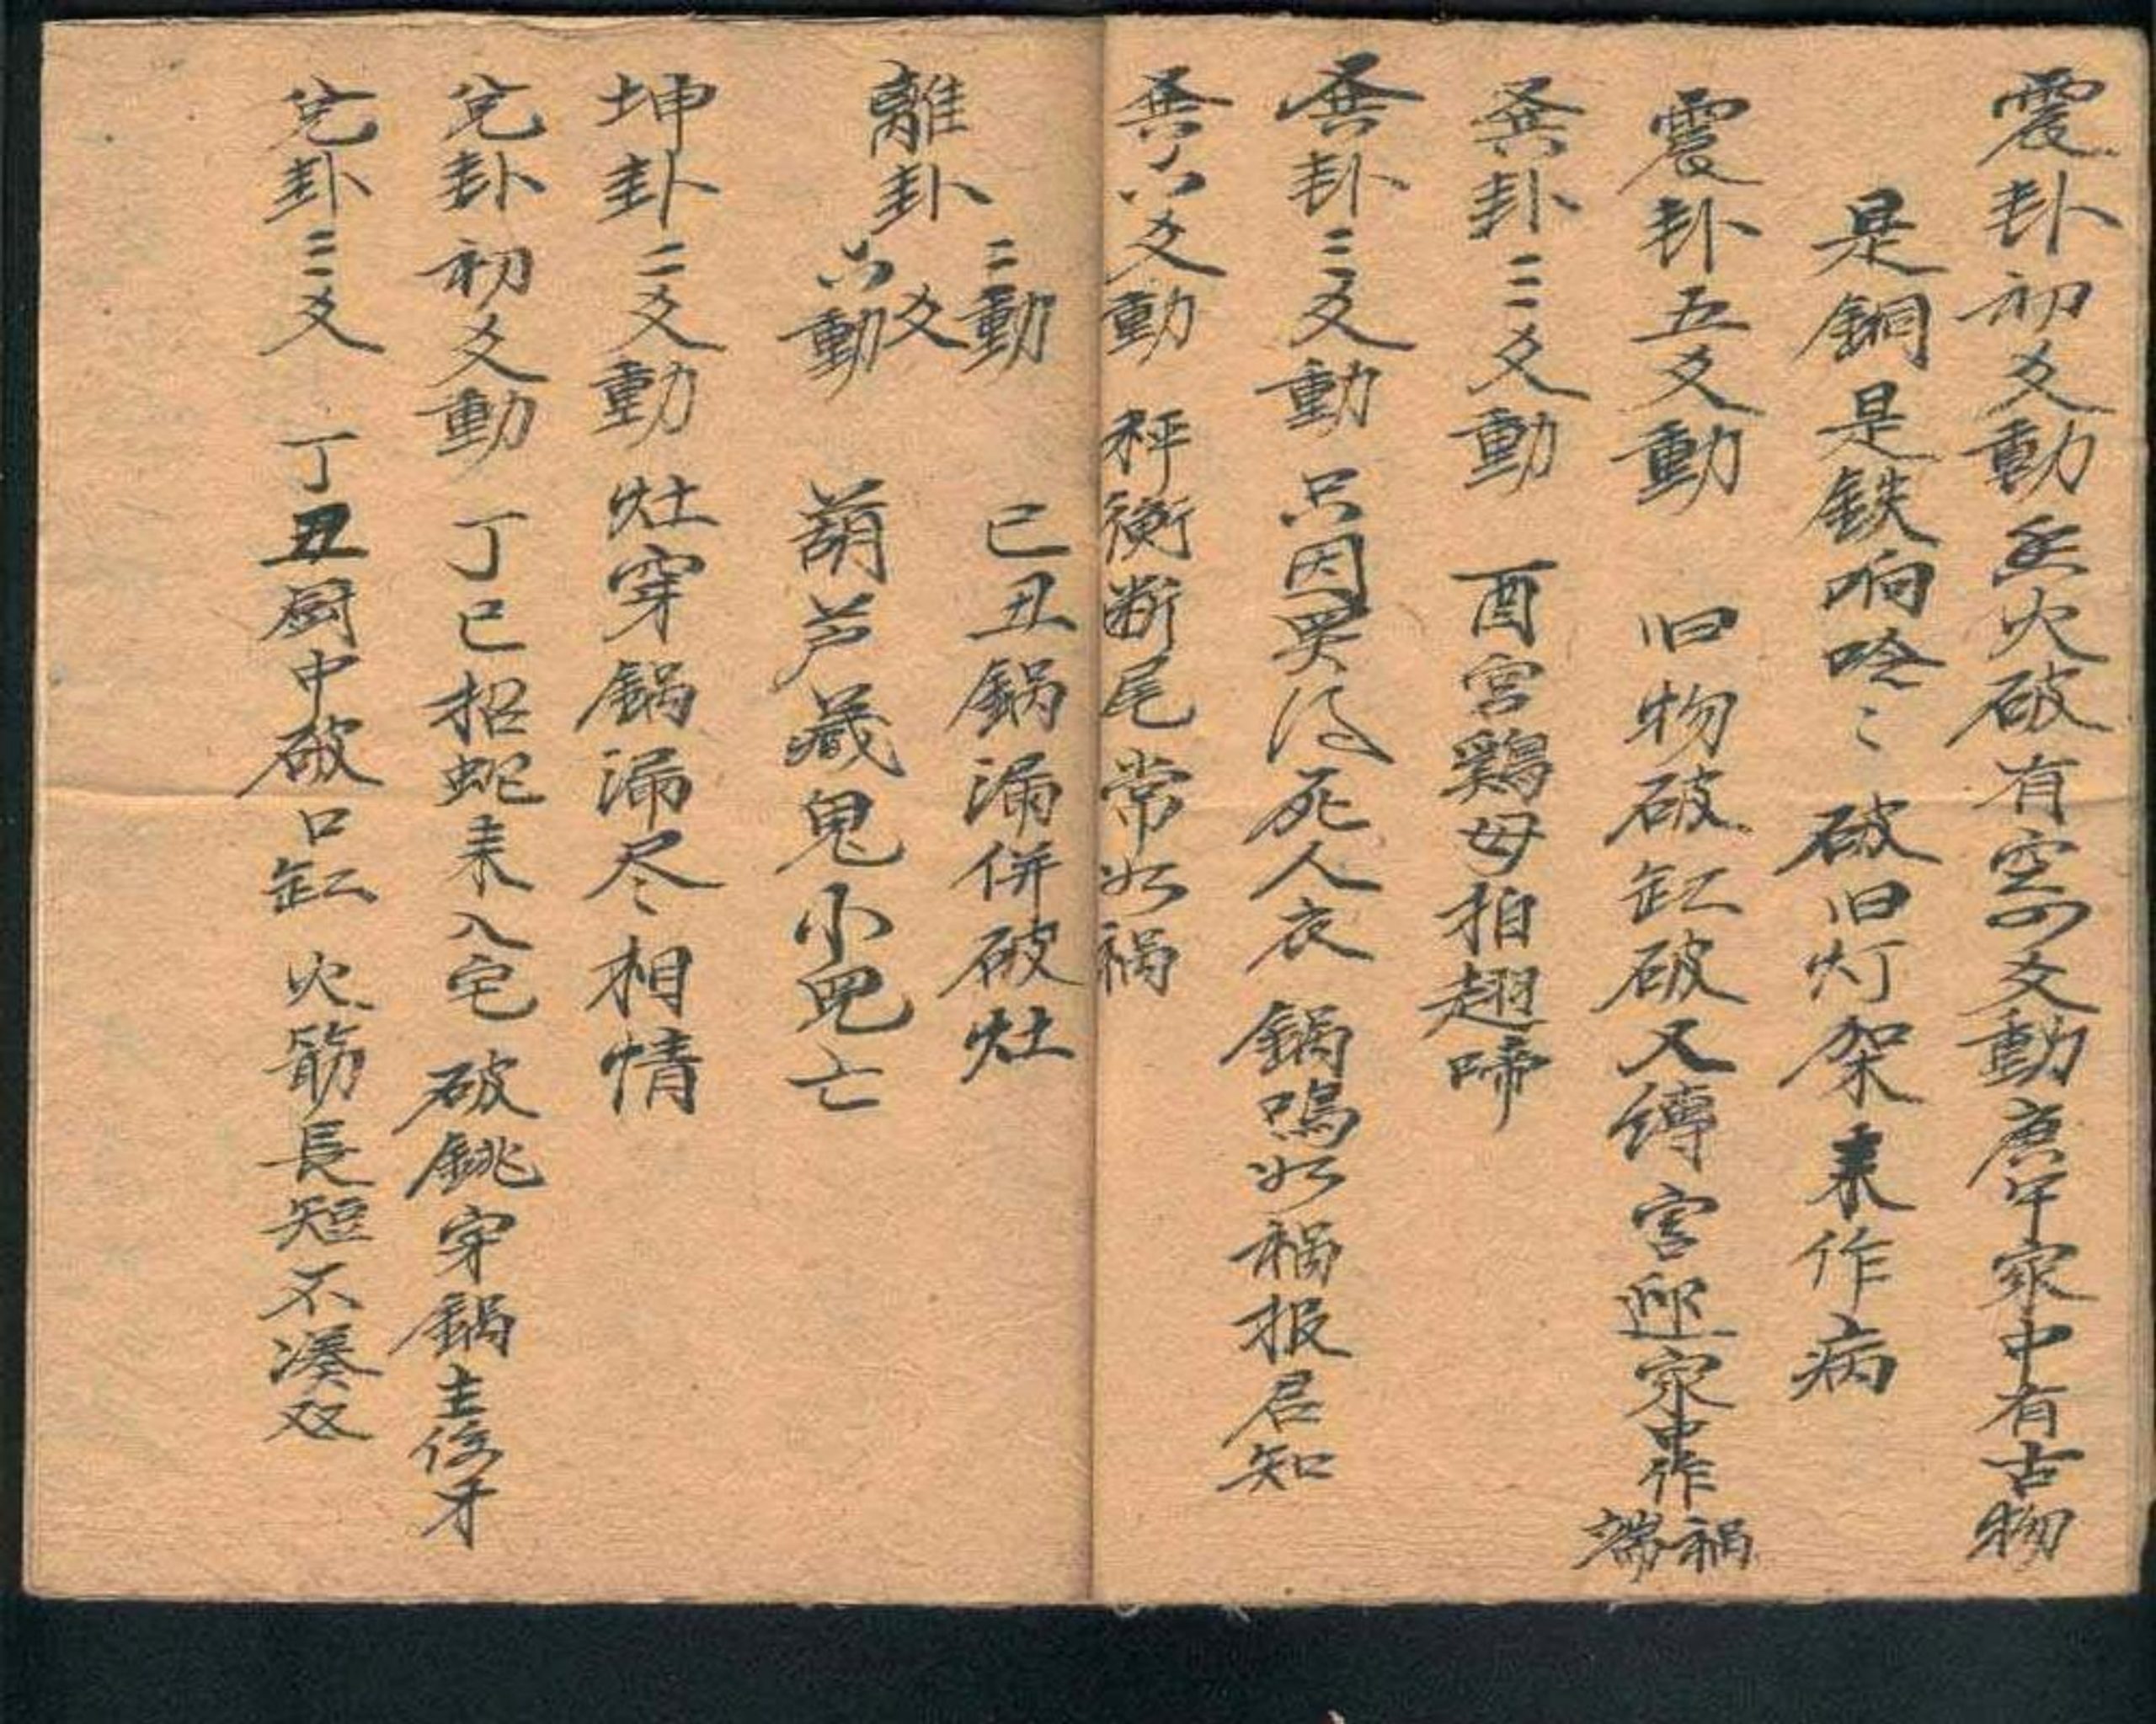 震卦初爻動 火破有空 四爻動庚午家中有古物
是銅是鉄响唸〻破旧灯架耒作病
震卦五爻動 旧物破缸破又縛 宮迎家中作禍端
巽卦三爻動 酉宮鷄母拍翅啼
巽卦三爻動 只因男 死人衣 鍋鳴必禍报君知
巽六爻動 秤衡断尾常必禍
離卦二爻動 己丑鍋漏併破灶
六爻動 葫芦藏鬼小児亡
坤卦二爻動 灶穿鍋漏尽相情
兑卦初爻動 丁巳招蛇耒入宅 破銚穿鍋主 牙
兑卦二爻 丁丑厨中破口缸 火筯長短不凑双